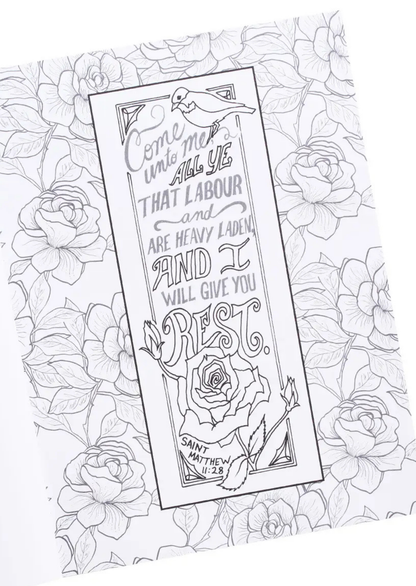 Come
unto me
ALL YE
THAT LABOUR
and
ARE HEAVY LADEN,
AND I
WILL GIVE YOU
REST.
SAINT
MATTHEW
11:28